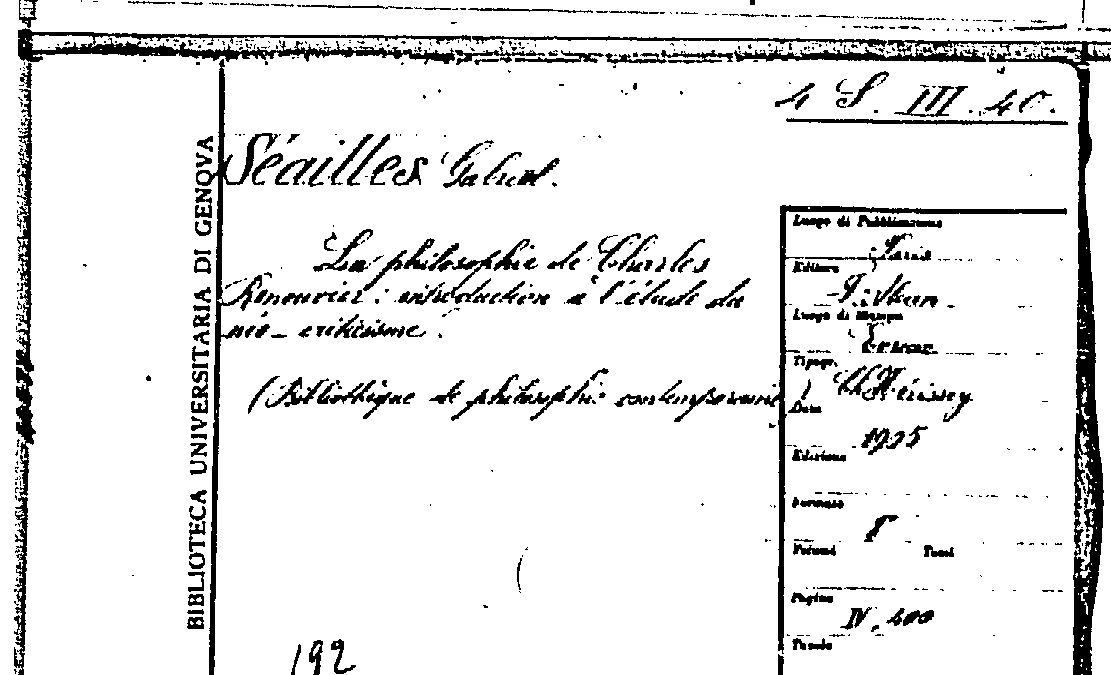 4 S. III. 40.
BIBLIOTECA UNIVERSITARIA DI GENOVA
Séailles Gabriel.
La philosophie de Charles
Renouvier: introduction à l'étude du
néo-criticisme.
(Bibliothèque de philosophie contemporaine)
Luogo di Pubblicazione
Paris
Editore
F. Alcan
Luogo di Stampa
Evreux
Tipogr.
Ch. Hérissey
Data
1905
Edizione
Formato
8°
Volumi Tomi
Pagine
IV, 400
Tavole
192